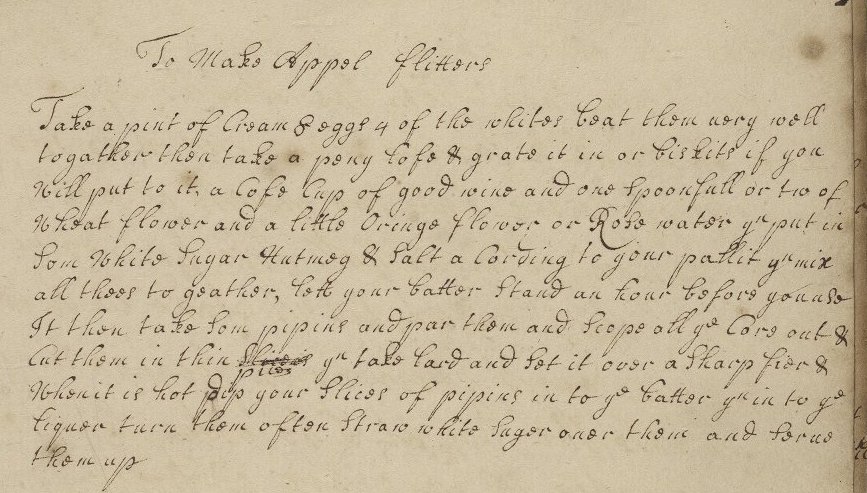 To Make Appel flitters
Take a pint of Cream 8 eggs 4 of the whites beat them uery well
togather then take a peny lofe & grate it in or biskits if you
Will put to it, a Cofe Cup of good wine and one spoonfull or tw of
Wheat flower and a little Oringe flower or Rose water yn put in
Som White Sugar Nutmeg & Salt a Cording to your pallit yn mix
all thees to geather, lett your batter Stand an hour before you use
It then take Som pipins and par them and Scope all ye Core out &
Cut them in thin Slices pices yn take lard and Set it over a Sharp fier &
When it is hot dip your Slices of pipins in to ye batter yn in to ye
liquer turn them often Straw white Suger ouer them and Serue
them up